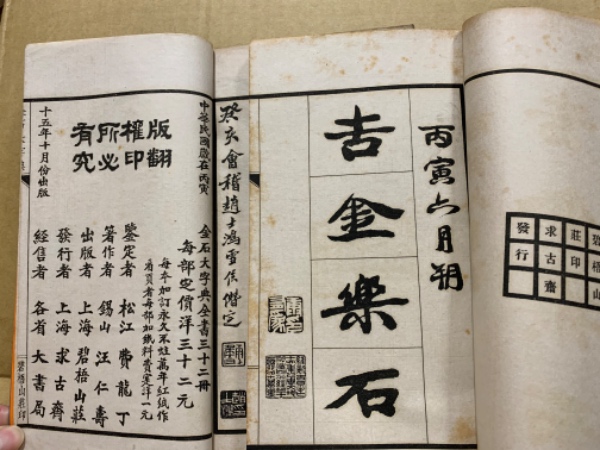 碧梧山
莊印
求古齋
發行
丙寅六月朔
吉金樂石
癸亥會稽趙士鴻
中華民國歲在丙寅
版權所有
翻印必究
十五年十月份出版
金石大字典全書三十二冊
每部定價洋三十二元
每本加訂永久不蛀萬年紅紙作
看頁者每部加紙料費實洋一元
鑒定者 松江費龍丁
著作者 錫山汪仁壽
出版者 上海碧梧山莊
發行者 上海求古齋
經售者 各省大書局
碧梧山莊印